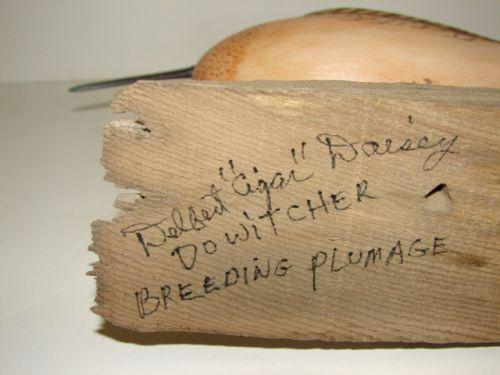 Delbert "Cigar" Daisey
DOWITCHER
BREEDING PLUMAGE